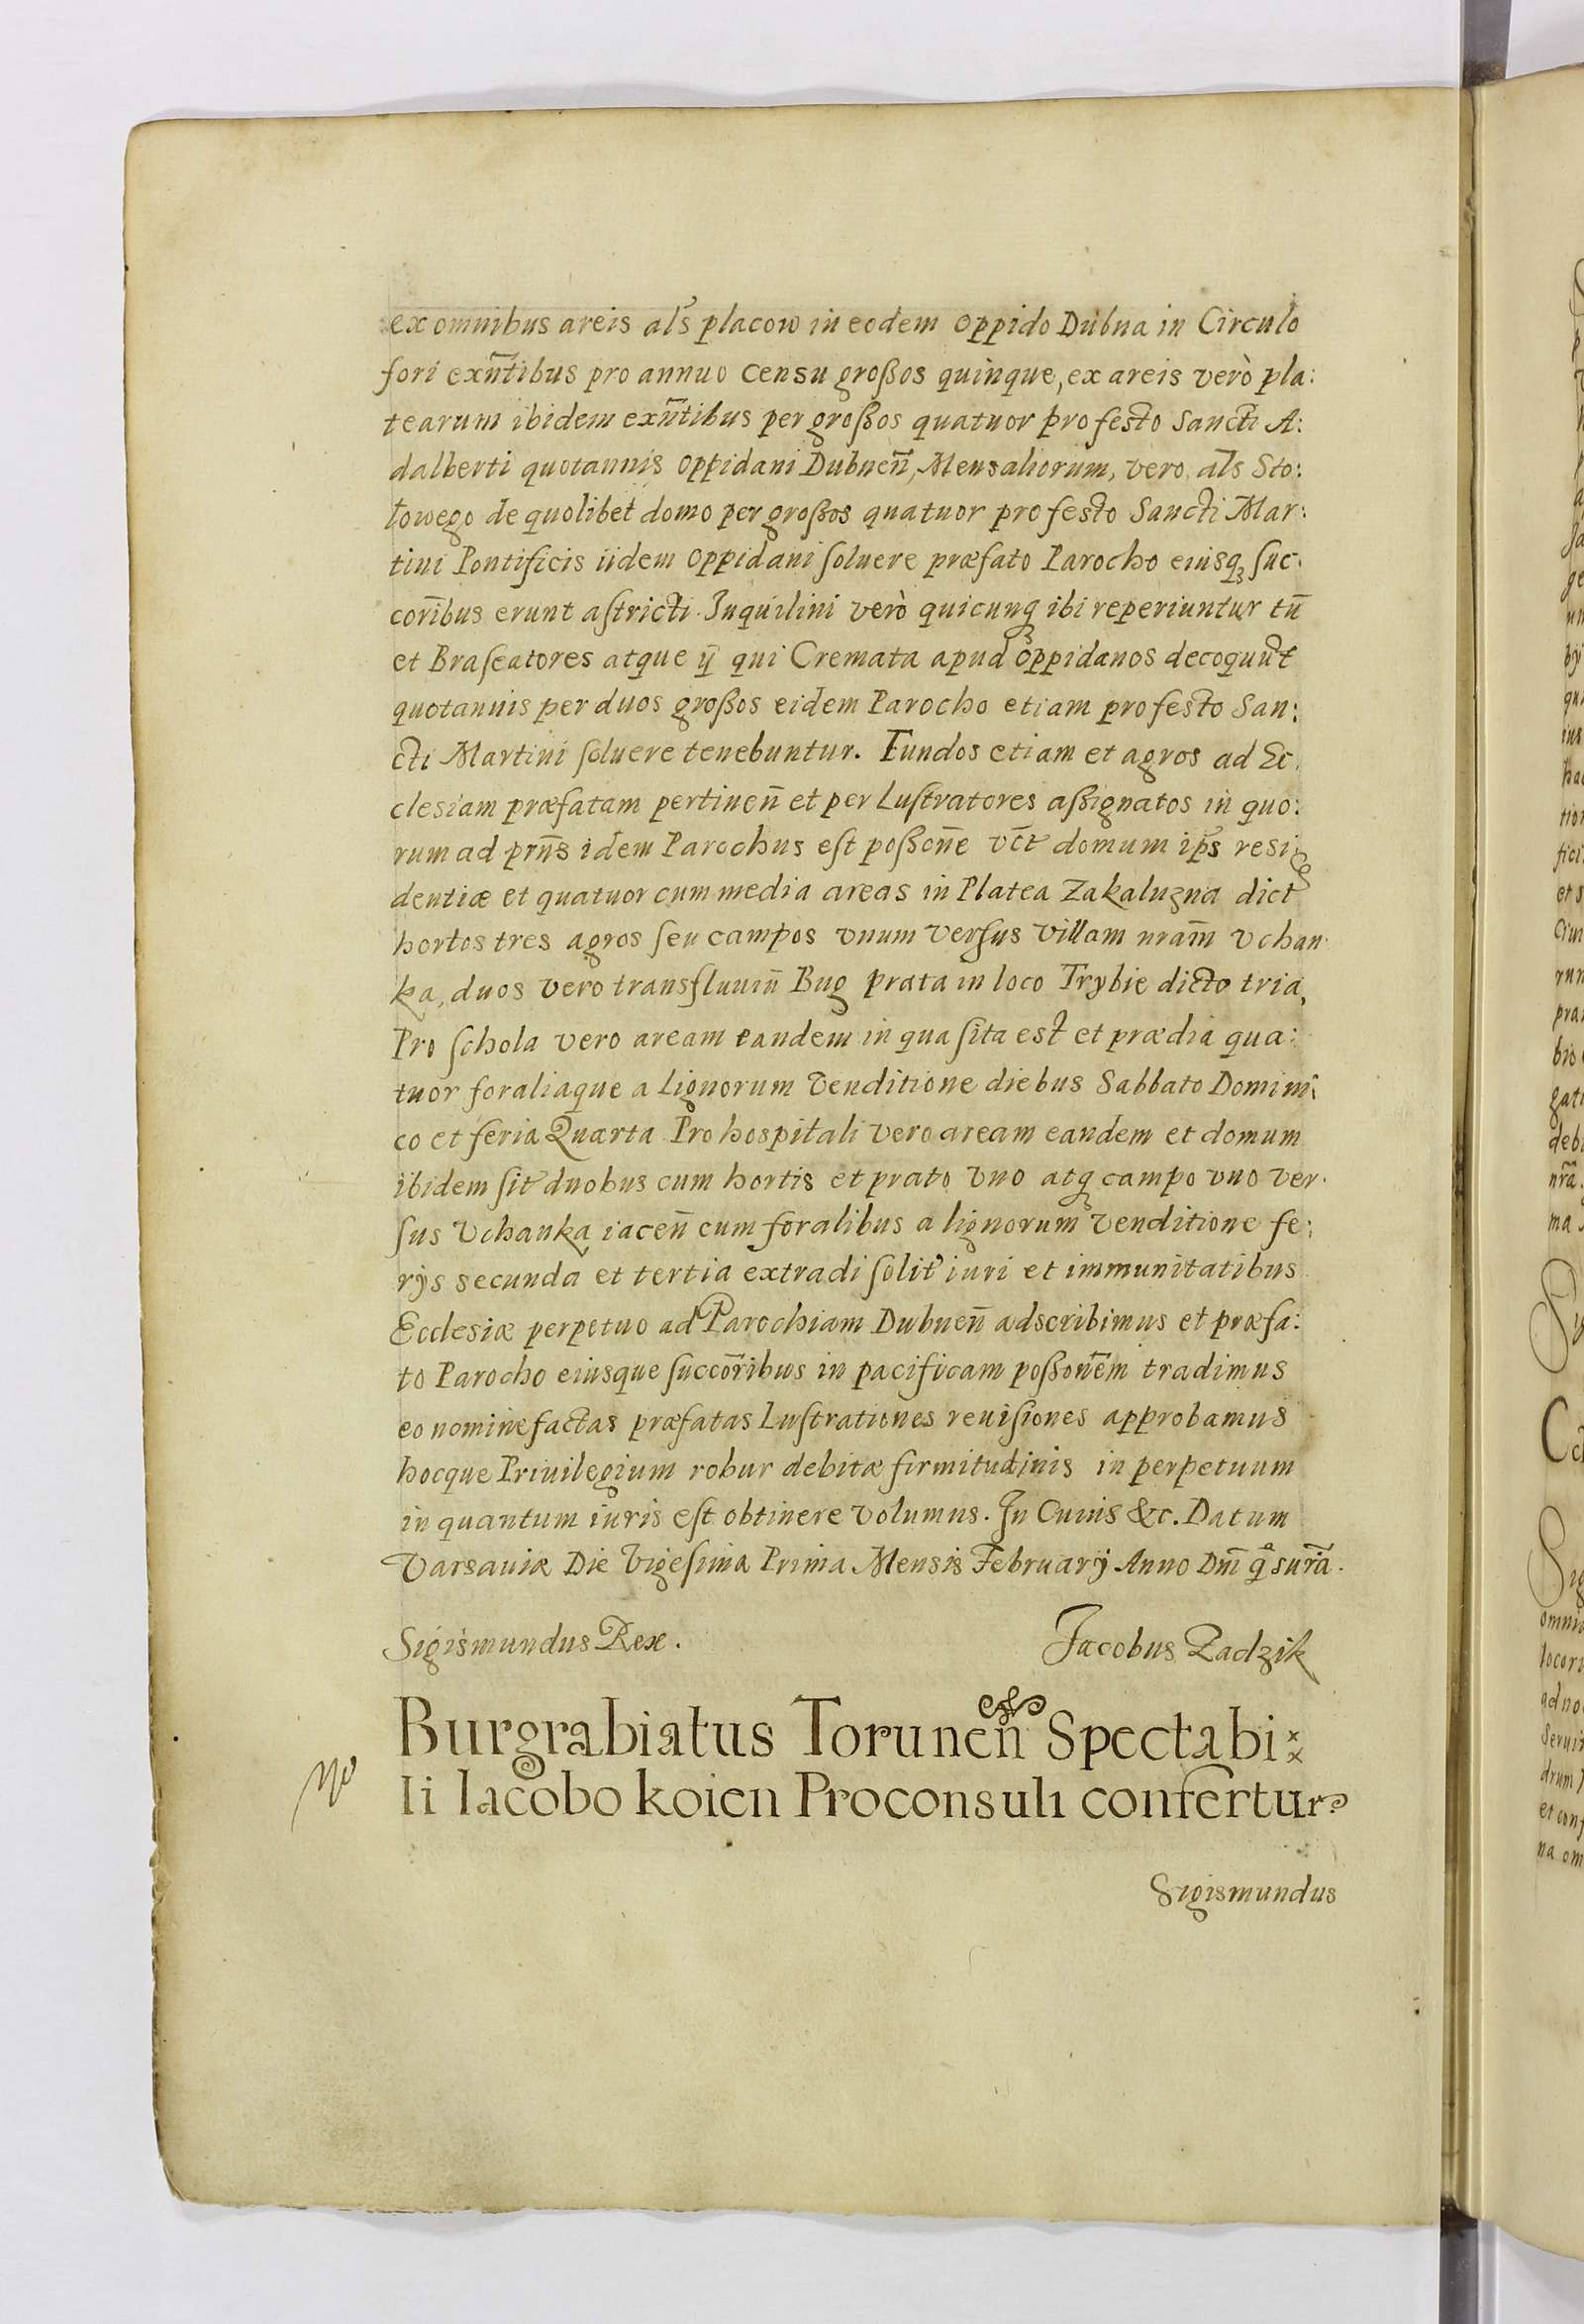 ex omnibus areis als placow in eodem oppido Dubna in Circulo
fori exn̄tibus pro annuo censu großos quinque, ex areis verò pla:
tearum ibidem exn̄tibus per großos quatuor pro festo Sancti A:
dalberti quotannis oppidani Dubnen̄, Mensaliorum, vero als Sto:
łowego de quolibet domo per großos quatuor pro festo Sancti Mar:
tini Pontificis iidem oppidani soluere præfato Parocho eiusq₃ suc:
corībus erunt astricti. Inquilini verò quicunq₃ ibi reperiuntur tū
et Braseatores atque ij qui Cremata apud oppidanos decoquūt
quotannis per duos großos eidem Parocho etiam pro festo San:
cti Martini soluere tenebuntur. Fundos etiam et agros ad Ec.
clesiam præfatam pertinen̄ et per Lustratores aßignatos in quo:
rum ad prn̄s idem Parochus est poßon̄e vc̄t domum ips resi:
dentiæ et quatuor cum media areas in Platea Zakaluzna dict
hortos tres agros seu campos vnum versus villam nram̄ Vchan:
ka, duos vero trans fluuin̄ Bug prata in loco Trybie dicto tria,
Pro schola vero aream eandem in qua sita est et prædia qua:
tuor foraliaque a Lignorum venditione diebus Sabbato Domini:
co et feria Quarta. Pro hospitali vero aream eandem et domum
ibidem sit duobus cum hortis et prato vno atq₃ campo vno ver:
sus Vchanka iacen̄ cum foralibus a lignorum venditione fe:
rijs secunda et tertia extradi solit iuri et immunitatibus
Ecclesiæ perpetuo ad Parochiam Dubnen̄ adscribimus et præfa:
to Parocho eiusque succorībus in pacificam poßonēm tradimus
eo nomine factas præfatas Lustrationes reuisiones approbamus
hocque Priuilegium robur debitæ firmitudinis in perpetuum
in quantum iuris est obtinere volumus. In Cuius &c. Datum
Varsauiæ Die Vigesima Prima Mensis Februarij Anno Dnī q̊ surā.
Sigismundus Rex. Jacobus Zadzik
Burgrabiatus Torunen̄ Spectabi:
li Iacobo koien Proconsuli confertur
Sigismundus